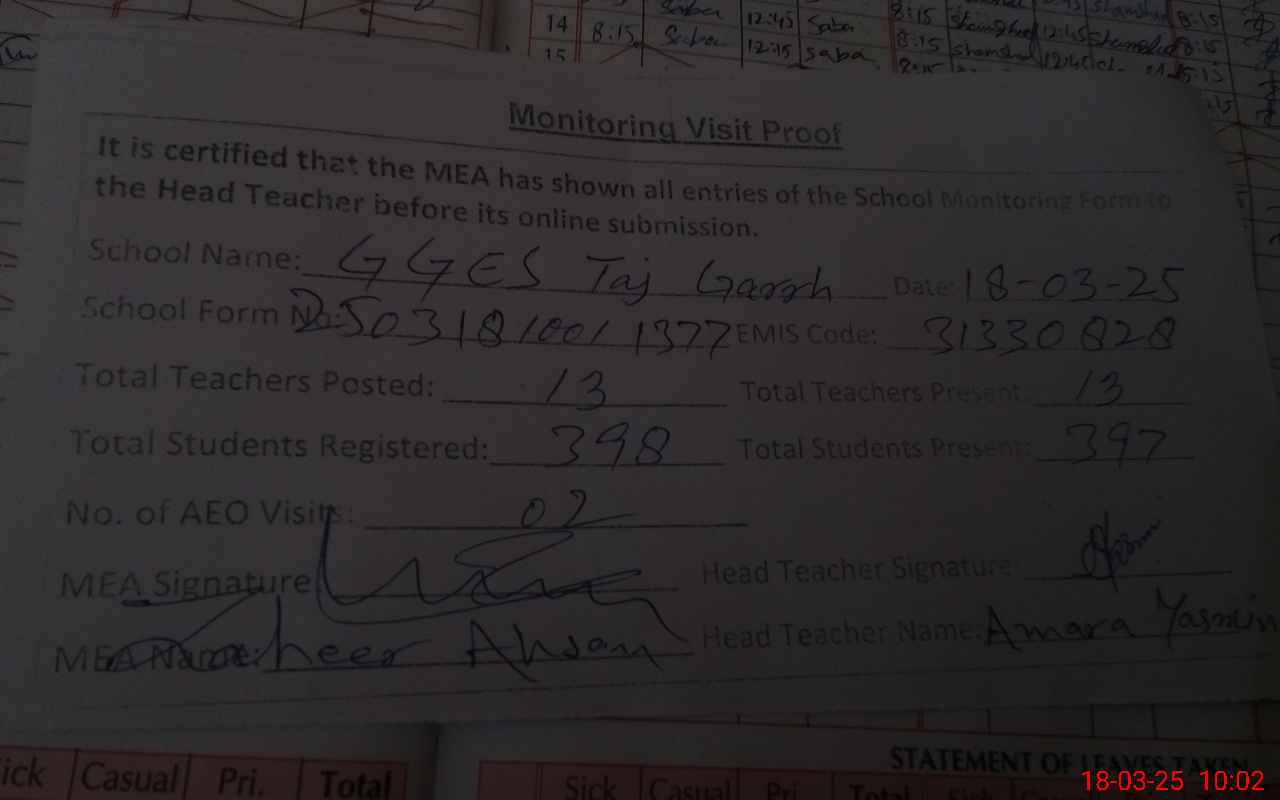 14 8:15 Saba 12:45 Saba 8:15 Shamshad 12:45 Shamshad 8:15
15 12:45 Saba 8:15 Shamshad
Monitoring Visit Proof
It is certified that the MEA has shown all entries of the School Monitoring Form to
the Head Teacher before its online submission.
School Name: GGES Taj Garrh Date: 18-03-25
School Form No: 25031810011377 EMIS Code: 31330828
Total Teachers Posted: 13 Total Teachers Present: 13
Total Students Registered: 398 Total Students Present: 397
No. of AEO Visits: 02
MEA Signature Head Teacher Signature
MEA Name: Aheer Ahsan Head Teacher Name: Amara Yasmin
STATEMENT OF LEAVES TAKEN
Sick Casual Pri. Total Sick Casual Pri. Total Sick Casual
18-03-25 10:02